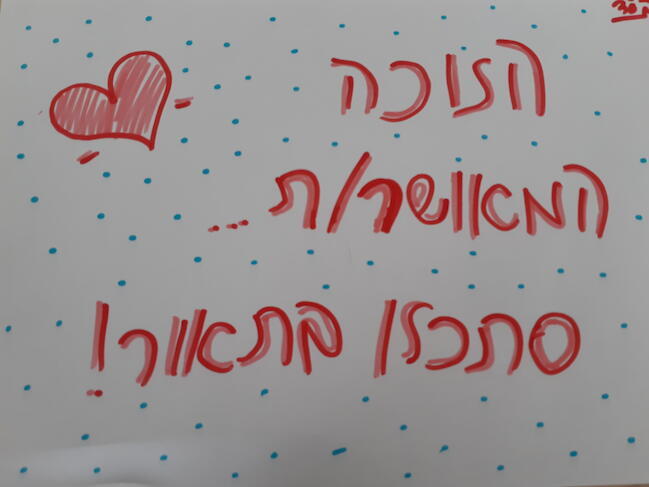 הזוכה
המאושר/ת ...
סתכלו בתאור!